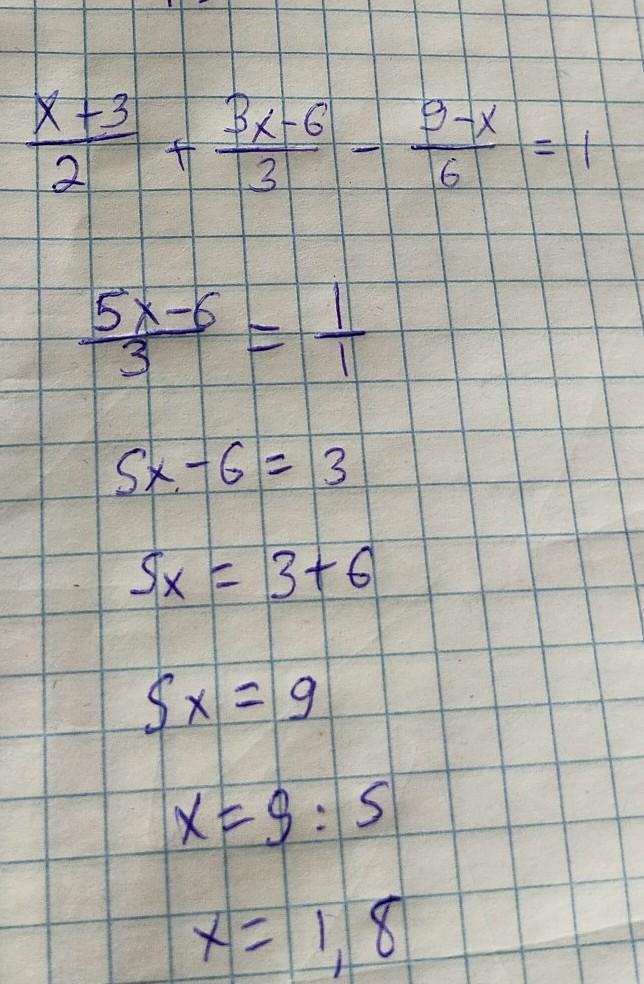 x+3/2 + 3x-6/3 - 9-x/6 = 1
5x-6/3 = 1/1
5x-6 = 3
5x = 3+6
5x = 9
x = 9 : 5
x = 1,8